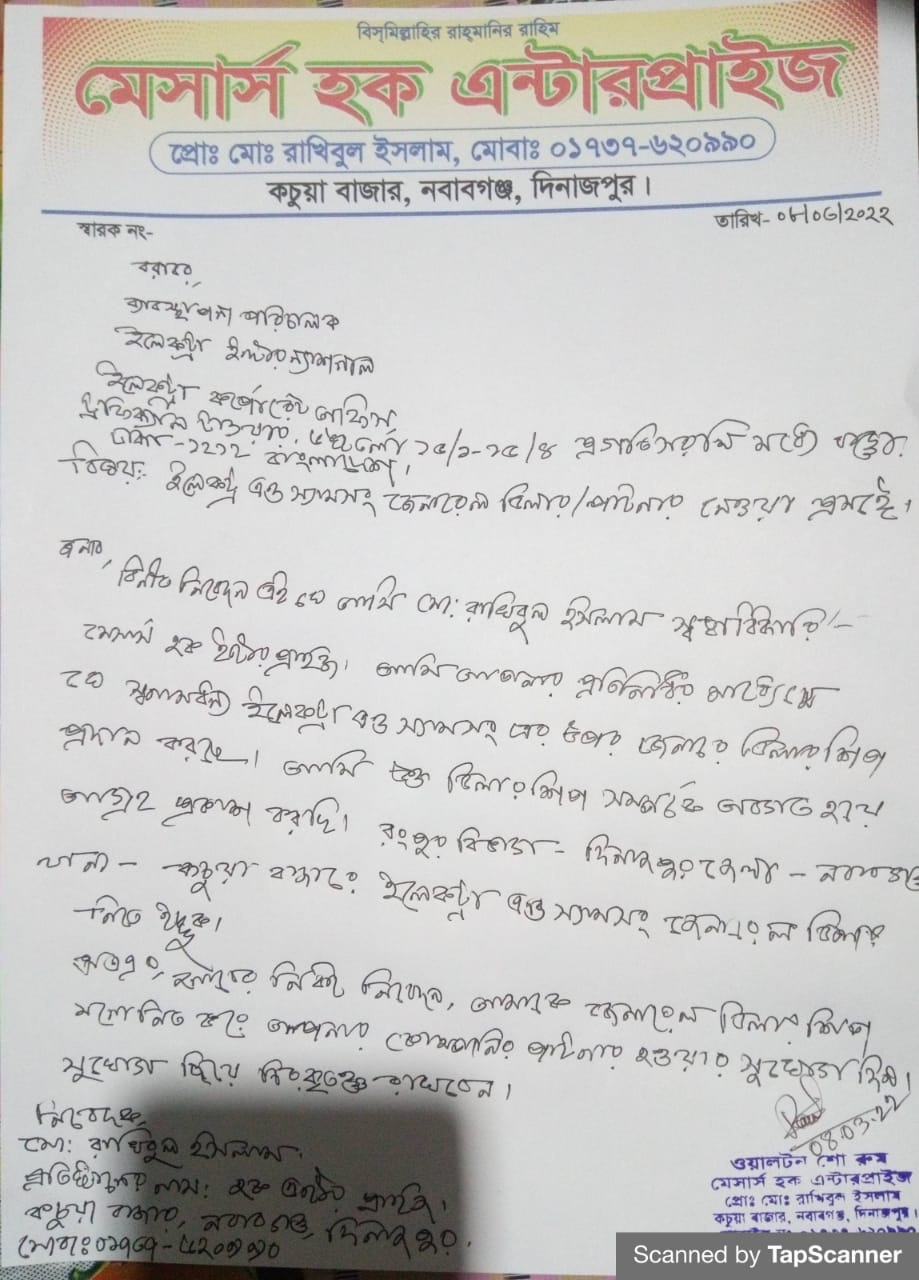 বিস্‌মিল্লাহির রাহ্‌মানির রাহিম
মেসার্স হক এন্টারপ্রাইজ
প্রোঃ মোঃ রাখিবুল ইসলাম, মোবাঃ ০১৭৩৭-৬২০৯৯০
কচুয়া বাজার, নবাবগঞ্জ, দিনাজপুর।
স্মারক নং-
তারিখ- ০৮/০৩/২০২২
বরাবর,
ব্যবস্থাপনা পরিচালক
ইলেকট্রা ইন্টারন্যাশনাল
ইলেকট্রা কর্পোরেট অফিস
টাওয়ার, ১৫/১-১৫/৪ প্রগতি সরণি মধ্য বাড্ডা
ঢাকা -১২১২ বাংলাদেশ।
বিষয়: ইলেকট্রা এন্ড স্যামসং জেনারেল ডিলার/পার্টনার নেওয়া প্রসঙ্গে।
জনাব,
বিনীত নিবেদন এই যে আমি মো: রাখিবুল ইসলাম
মেসার্স হক আমি আপনার প্রতিনিধির মাধ্যমে
যে ইলেকট্রা এন্ড স্যামসং এর উপর ডিলারশিপ
প্রদান করছে। আমি উক্ত ডিলারশিপ সম্পর্কে অবগত হয়ে
আগ্রহ প্রকাশ করছি। রংপুর বিভাগ - দিনাজপুর জেলা -
থানা - কচুয়া বাজারে ইলেকট্রা এন্ড স্যামসং জেনারেল ডিলার
নিতে ইচ্ছুক।
অতএব, নিকট নিবেদন, আমাকে জেনারেল ডিলারশিপ
মনোনিত করে আপনার কোম্পানির পার্টনার হওয়ার সুযোগ
সুযোগ দিয়ে রাখবেন।
08.03.22
নিবেদক,
মো: রাখিবুল ইসলাম
প্রতিষ্ঠানের নাম: হক
কচুয়া বাজার, নবাবগঞ্জ, দিনাজপুর.
মোবা:
ওয়ালটন শো রুম
মেসার্স হক এন্টারপ্রাইজ
প্রোঃ মোঃ রাখিবুল ইসলাম
কচুয়া বাজার, নবাবগঞ্জ, দিনাজপুর।
Scanned by TapScanner